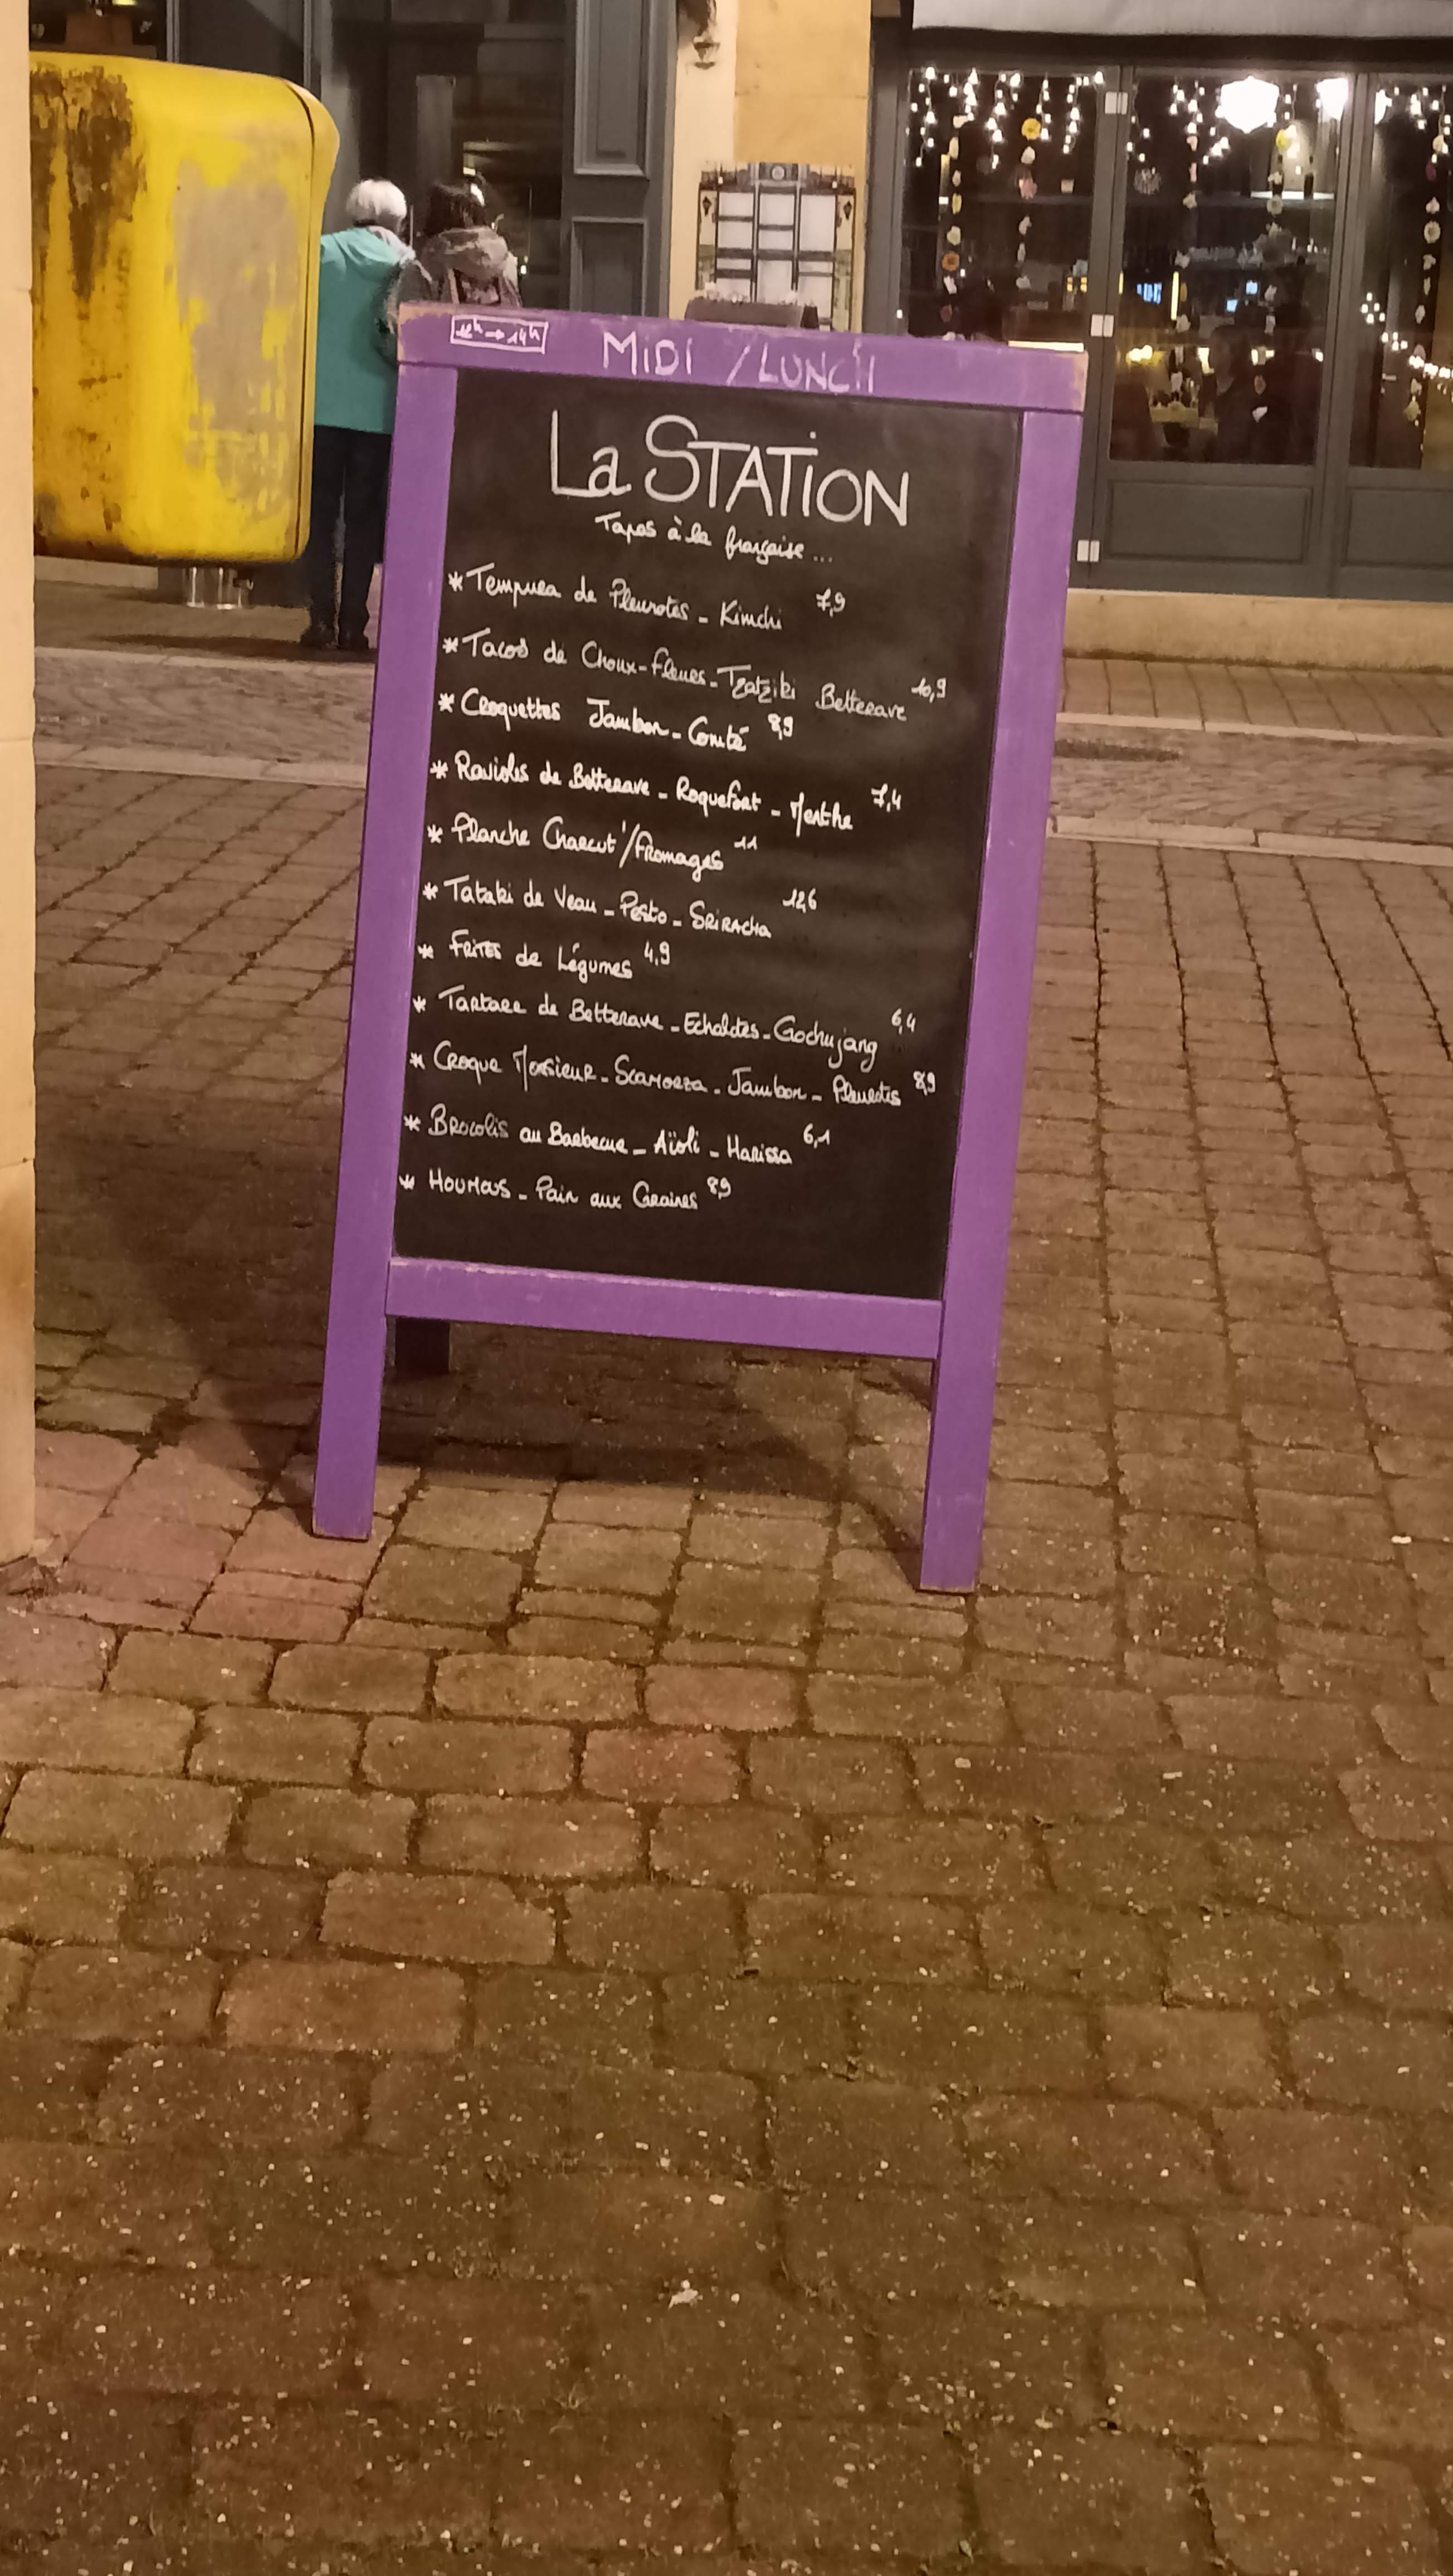 12h→14h
MiDi / LUNCH
La STATiON
Tapas à la française...
* Tempura de Pleurotes - Kimchi 7,9
* Tacos de Choux-fleurs - Tzatziki Betterave 10,9
* Croquettes Jambon - Comté 8,9
* Ravioles de Betterave - Roquefort - Menthe 7,4
* Planche Charcut'/fromages 11
* Tataki de Veau - Pesto - SRiRACHA 12,6
* FRiTES de Légumes 4,9
* Tartare de Betterave - Echalotes - Gochujang 6,4
* Croque Monsieur - Scamorza - Jambon - Pleurotes 8,9
* Brocolis au Barbecue - Aïoli - Harissa 6,1
* Houmous - Pain aux Graines 8,9